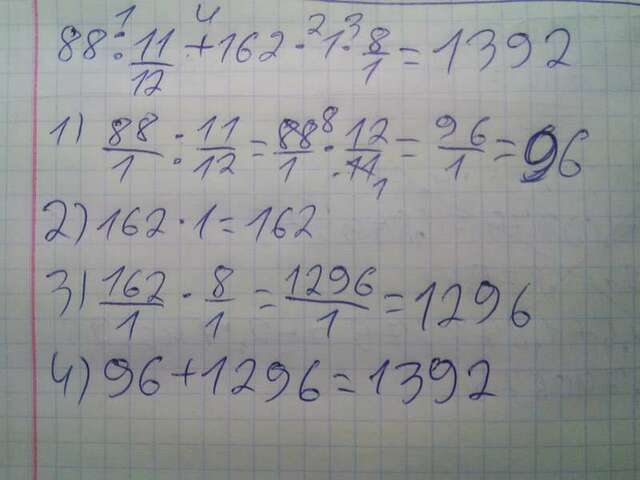 88 :¹ 11/12 +⁴ 162 ·² 1 ·³ 8/1 = 1392
1) 88/1 : 11/12 = 88⁸/1 · 12/11₁ = 96/1 = 96
2) 162 · 1 = 162
3) 162/1 · 8/1 = 1296/1 = 1296
4) 96 + 1296 = 1392